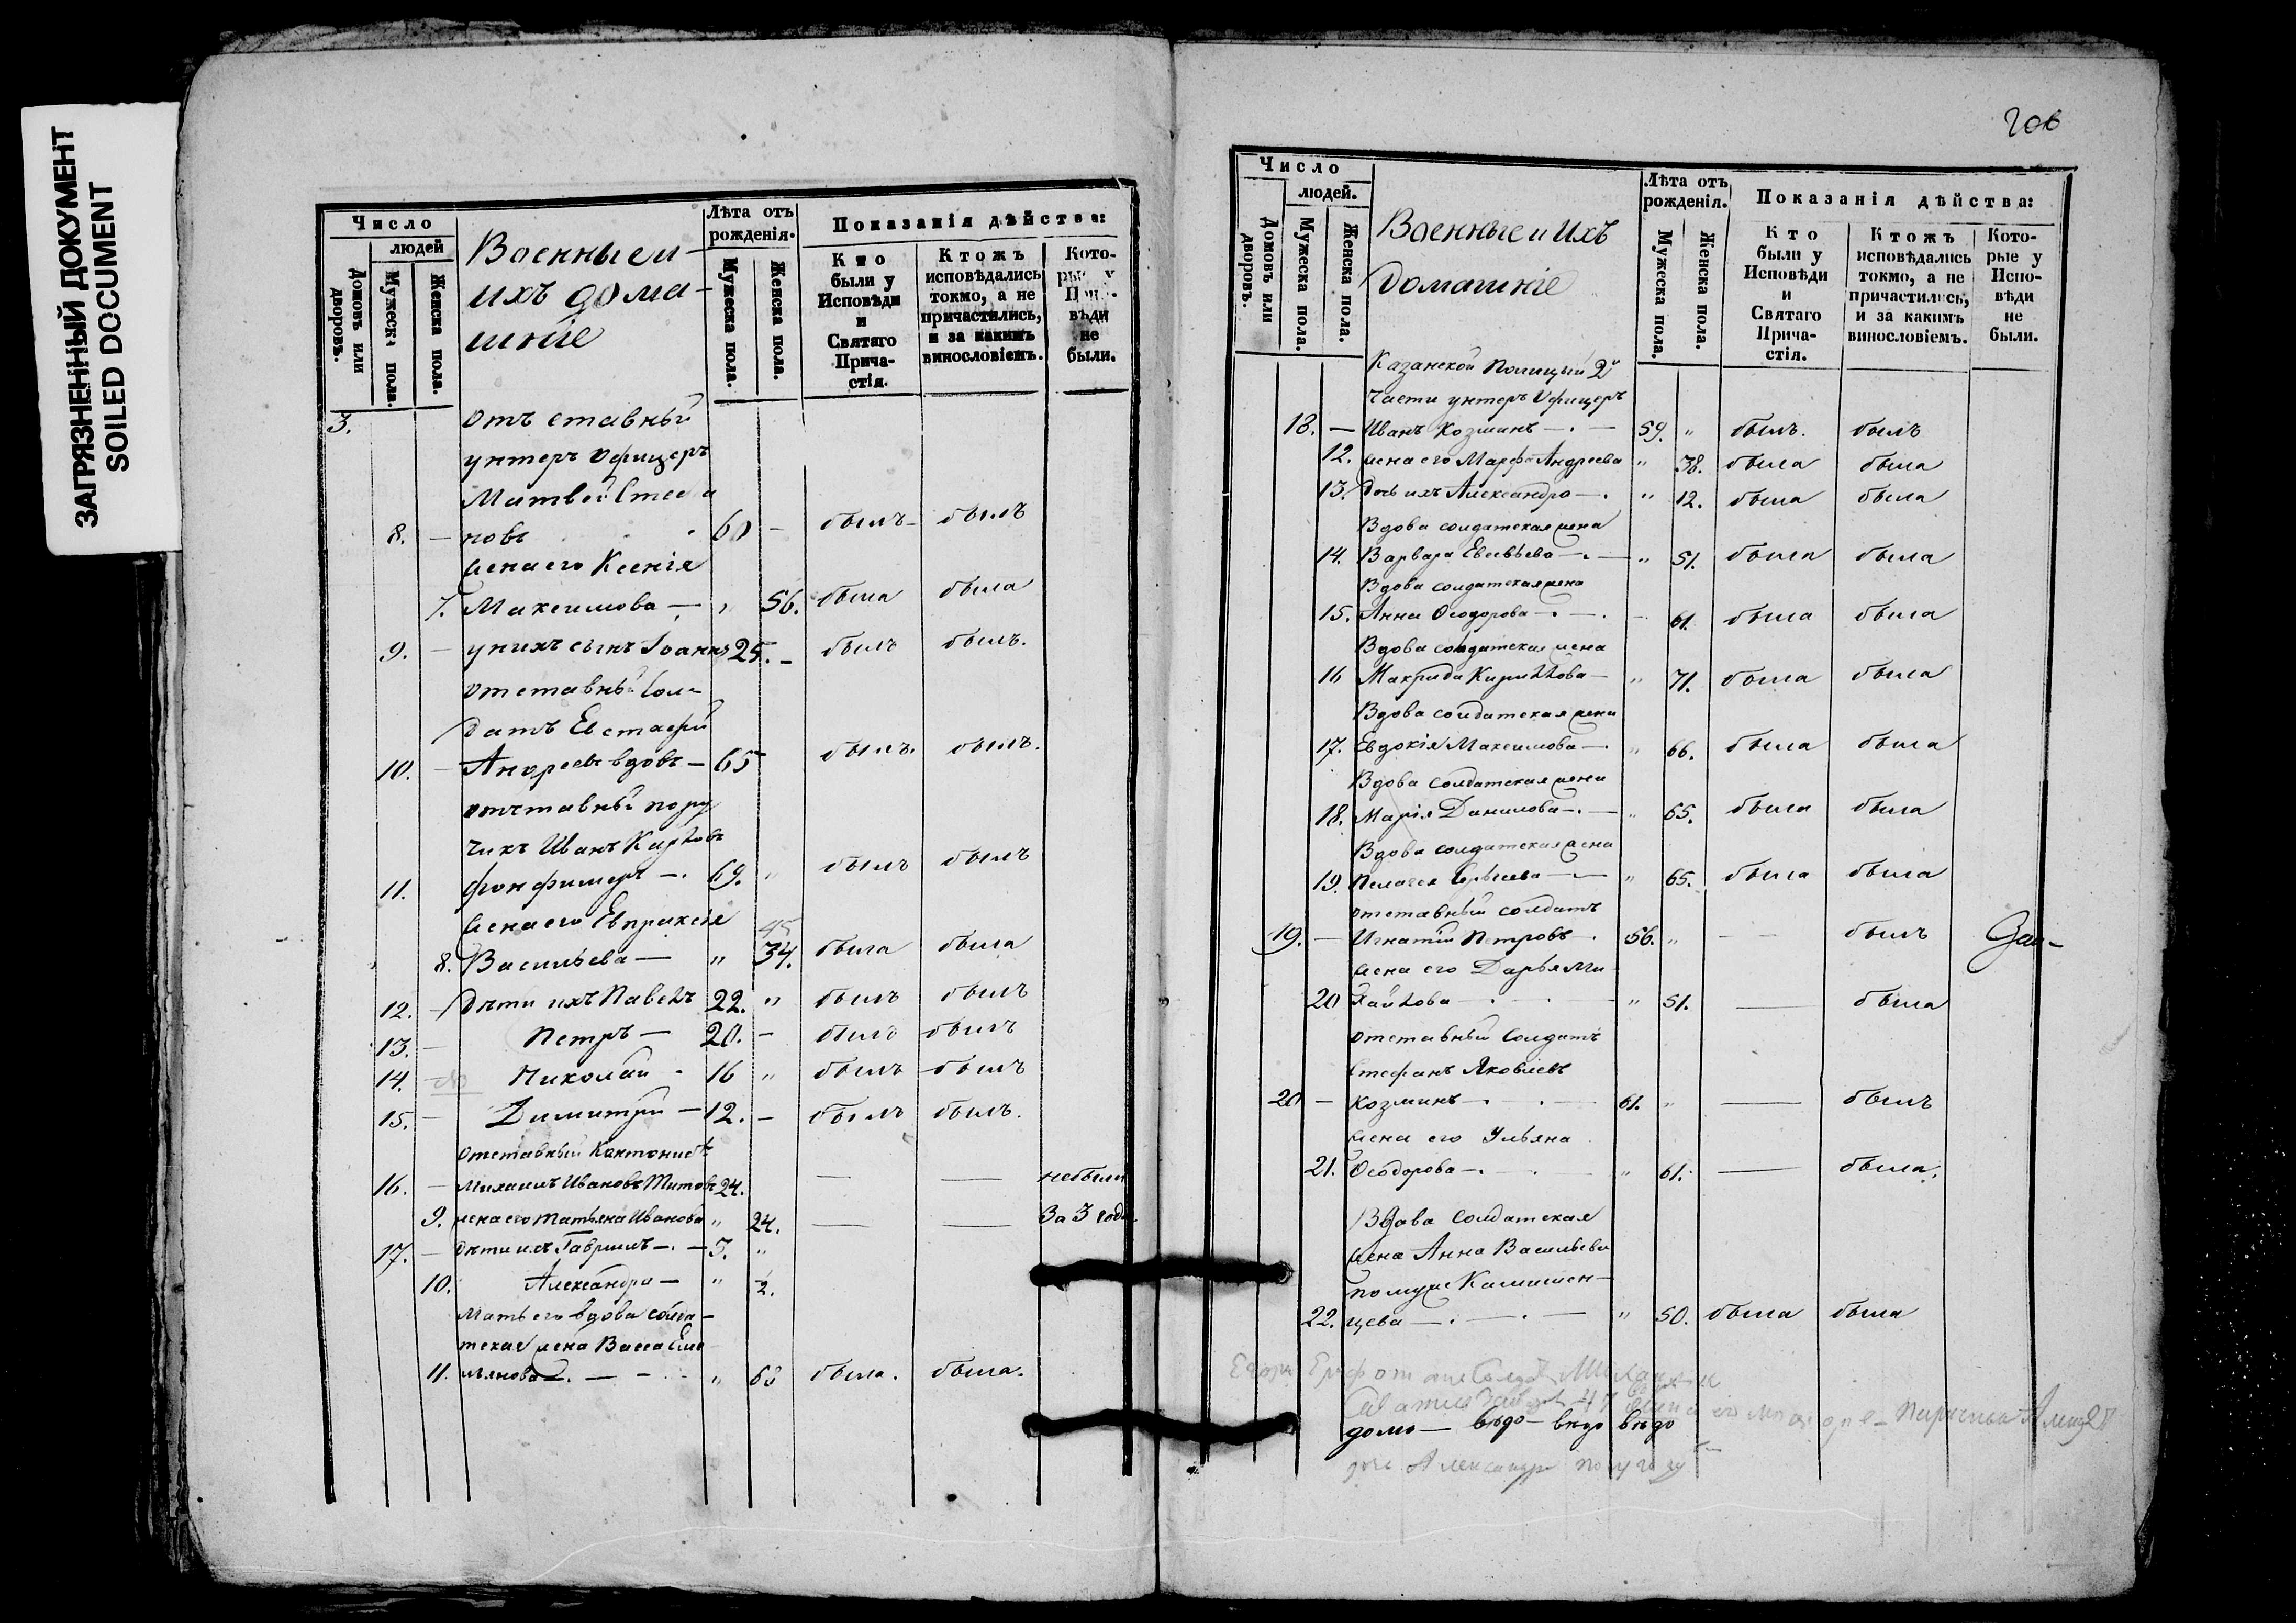 ЗАГРЯЗНЕННЫЙ ДОКУМЕНТ
SOILED DOCUMENT
Число
людей
Домовъ или дворовъ.
Мужеска пола.
Женска пола.
Военные и
ихъ дома-
шніе
Лѣта отъ рожденія.
Мужеска пола.
Женска пола.
Показанія дѣйства:
Кто были у Исповѣди и Святаго Причастія.
Ктожъ исповѣдались токмо, а не причастились, и за какимъ винословіемъ.
Которые у Исповѣди не были.
3. отъ ставный
унтеръ офицеръ
Матвей Стефа
8. — новъ 60 — былъ — былъ
жена его Ксенія
7. Максимова — " 56. была была
9. — у нихъ сынъ Іоаннъ 25. — былъ былъ.
отставный Сол-
датъ Евстафій
10. — Андреевъ вдовъ — 65 былъ. былъ.
отставный пору
чикъ Иванъ Карловъ
11. фонфишеръ —. 69. " былъ былъ
жена его Евпраксія
45
8. Васильева — " 34. была была
12. — дѣти ихъ Павелъ 22. " былъ былъ
13. — Петръ — 20. — былъ былъ
14. — Николай - 16 " былъ былъ
15. — Димитрій — 12. — былъ былъ.
отставный Кантонистъ
16. — Михаилъ Ивановъ Титовъ 24. — — небыли
9. жена его Татьяна Иванова " 24. — — За 3 года
17. — дѣти ихъ Гавріилъ —. — 3. "
10. Александра — " 2.
Мать его вдова солда-
тская жена Васса Еме
11. льянова —. — - " 63 была. была.
206
Число
людей.
Домовъ или дворовъ.
Мужеска пола.
Женска пола.
Военные и ихъ
домашніе
Лѣта отъ рожденія.
Мужеска пола.
Женска пола.
Показанія дѣйства:
Кто были у Исповѣди и Святаго Причастія.
Ктожъ исповѣдались токмо, а не причастились, и за какимъ винословіемъ.
Которые у Исповѣди не были.
Казанской Полиціи 2й
части унтеръ офицеръ
18. — Иванъ Козминъ —. — 59. " былъ. былъ
12. жена его Марфа Андреева " 38. была была
13. дочь ихъ Александра —. " 12. была была
Вдова солдатская жена
14. Варвара Евсевьева —. — " 51. была была
Вдова солдатская жена
15. Анна Ѳеодорова —. —. - 61. была была
Вдова солдатская жена
16 Макрида Кириллова — " 71. была была
Вдова солдатская жена
17. Евдокія Максимова —. " 66. была была
Вдова солдатская жена
18. Марія Данилова —. — " 65. была была
Вдова солдатская жена
19. Пелагея — " 65. была была
отставный солдатъ
19. — Игнатій Петровъ —. 56. " — — былъ
жена его Дарья Ми-
20 хайлова —. - — " 51. — была
отставный солдатъ
Стефанъ Яковлевъ
20 — Козминъ —. —. — 61. " — былъ
жена его Ульяна
21. Ѳеодорова —. —. — " 61. — была.
Вдова солдатская
жена Анна Васильева
по мужѣ Камышен-
22. цева —. —. — " 50. была была
дочь Александра полугоду